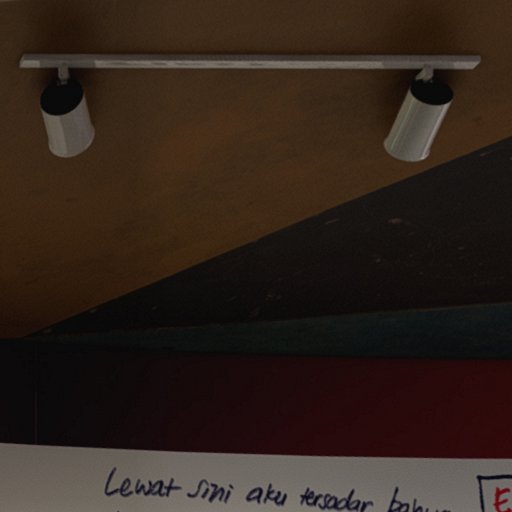 Lewat sini aku tersadar
E